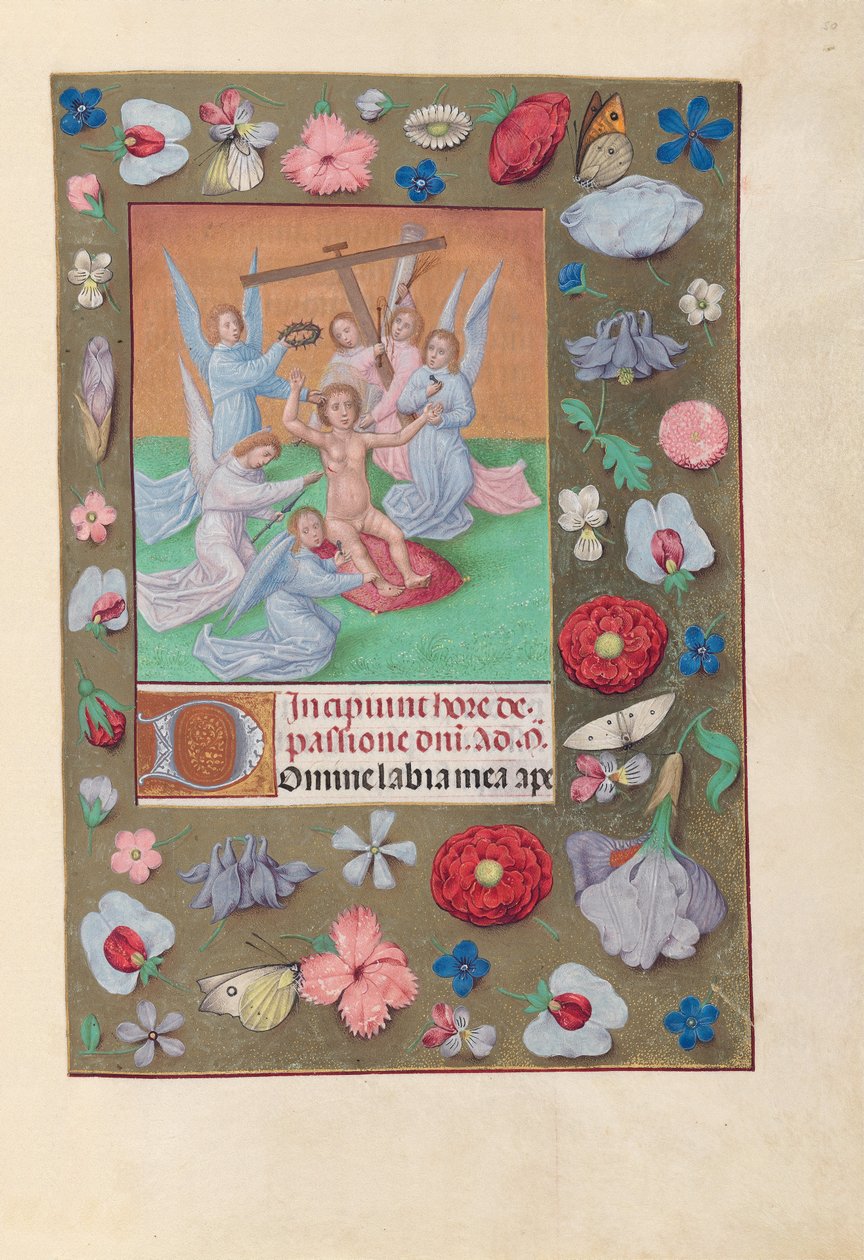 50
Incipiunt hore de
passione dn̄i. Ad. M̄.
Domine labia mea ape